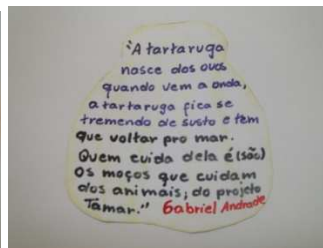 "A tartaruga
nasce dos ovos
quando vem a onda,
a tartaruga fica se
tremendo de susto e tem
que voltar pro mar.
Quem cuida dela é (são)
os moços que cuidam
dos animais; do projeto
Tamar." Gabriel Andrade